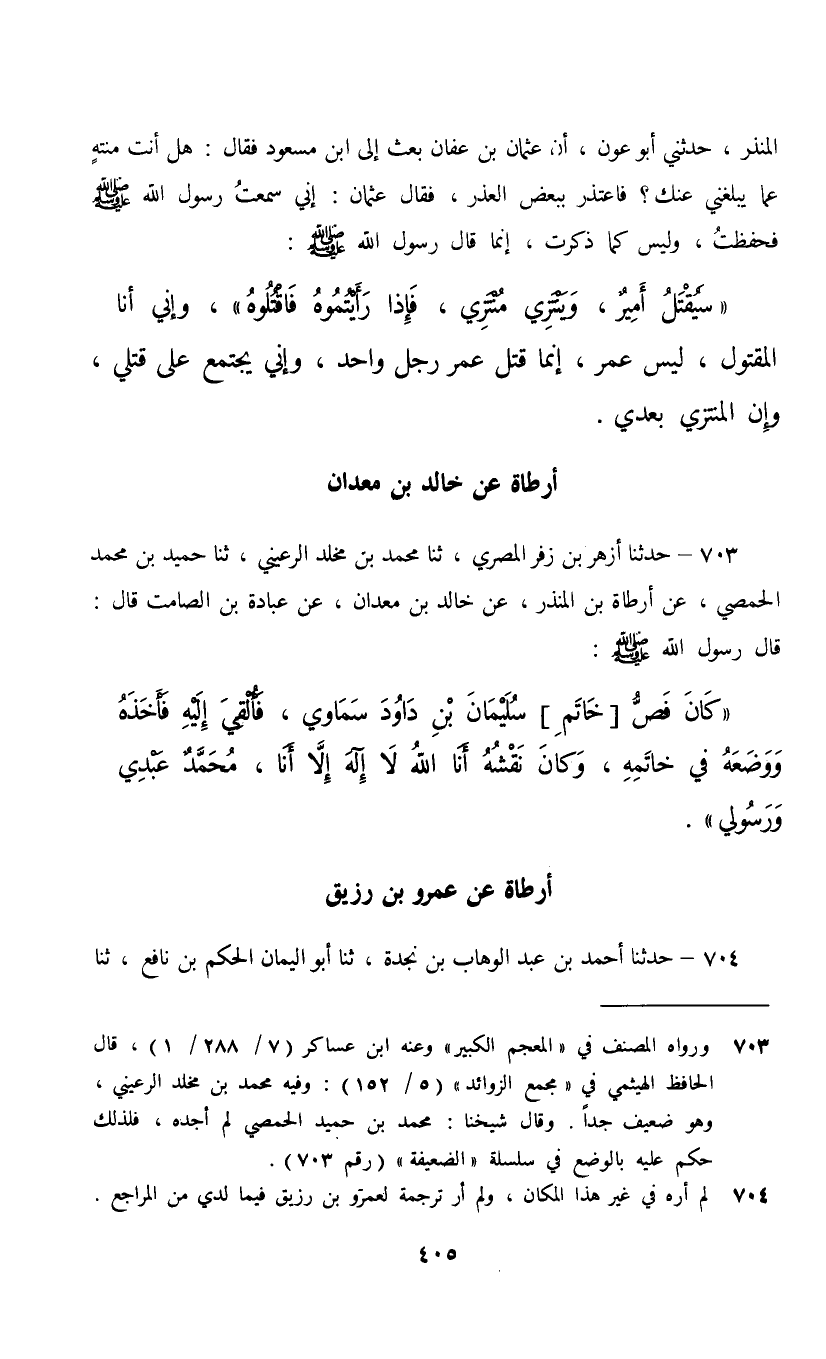 المنذر ، حدثني أبو عون ، أن عثمان بن عفان بعث إلى ابن مسعود فقال : هل أنت منتهٍ
عما يبلغني عنك؟ فاعتذر ببعض العذر ، فقال عثمان : إني سمعتُ رسول الله ﷺ
فحفظتُ ، وليس كما ذكرت ، إنما قال رسول الله ﷺ :
«سَيُقْتَلُ أَمِيرٌ ، وَيَنْتَزِي مُنْتَزِي ، فَإِذا رَأَيْتُمُوهُ فَاقْتُلُوهُ» ، وإني أنا
المقتول ، ليس عمر ، إنما قتل عمر رجل واحد ، وإني يجتمع على قتلي ،
وإن المنتزي بعدي .
أرطاة عن خالد بن معدان
٧٠٣ – حدثنا أزهر بن زفر المصري ، ثنا محمد بن مخلد الرعيني ، ثنا حميد بن محمد
الحمصي ، عن أرطاة بن المنذر ، عن خالد بن معدان ، عن عبادة بن الصامت قال :
قال رسول الله ﷺ :
«كَانَ فَصُّ [خَاتَمِ] سُلَيْمَانَ بْنِ دَاوُدَ سَمَاوي ، فَأُلْقِيَ إِلَيْهِ فَأَخَذَهُ
وَوَضَعَهُ في خاتَمِهِ ، وَكانَ نَقْشُهُ أَنَا اللهُ لَا إِلَهَ إِلَّا أَنَا ، مُحَمَّدٌ عَبْدِي
وَرَسُولي» .
أرطاة عن عمرو بن رزيق
٧٠٤ – حدثنا أحمد بن عبد الوهاب بن نجدة ، ثنا أبو اليمان الحكم بن نافع ، ثنا
٧٠٣ ورواه المصنف في «المعجم الكبير» وعنه ابن عساكر (٧/ ٢٨٨/ ١) ، قال
الحافظ الهيثمي في «مجمع الزوائد» (٥/ ١٥٢) : وفيه محمد بن مخلد الرعيني ،
وهو ضعيف جداً . وقال شيخنا : محمد بن حميد الحمصي لم أجده ، فلذلك
حكم عليه بالوضع في سلسلة «الضعيفة» (رقم ٧٠٣) .
٧٠٤ لم أره في غير هذا المكان ، ولم أر ترجمة لعمرو بن رزيق فيما لدي من المراجع .
٤٠٥